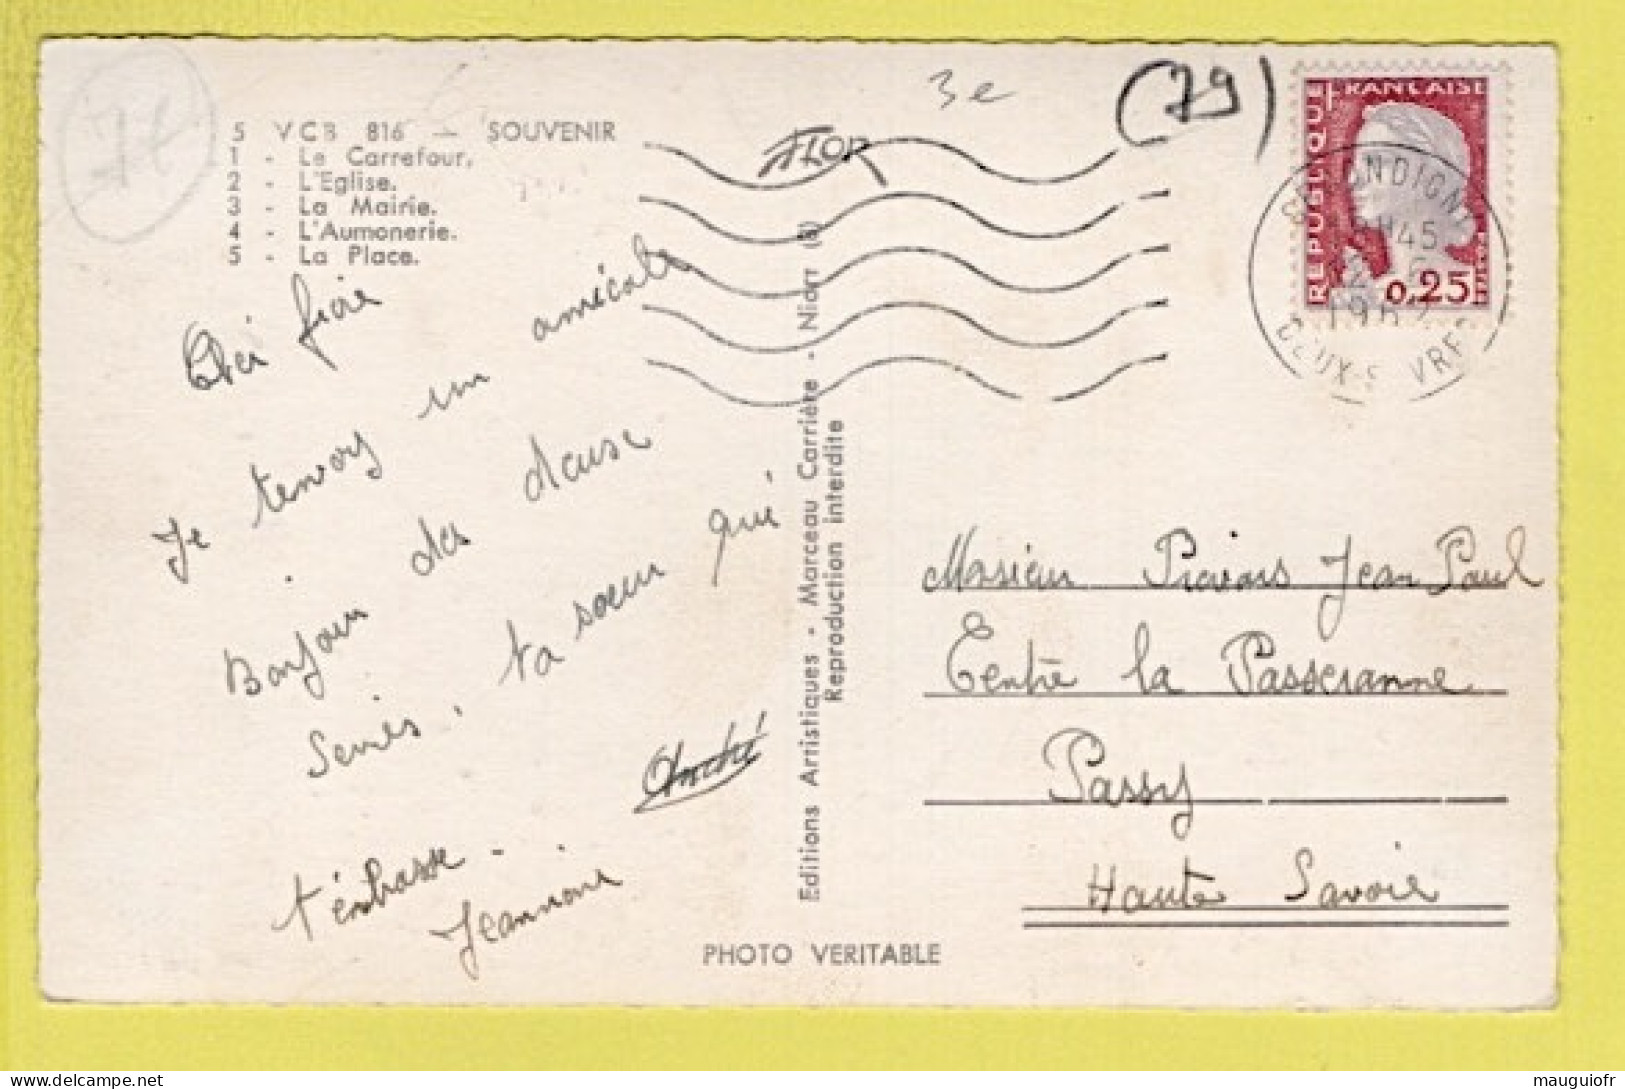 3e
(79)
7e
5 VCB 816 — SOUVENIR
1 - Le Carrefour.
2 - L'Eglise.
3 - La Mairie.
4 - L'Aumonerie.
5 - La Place.
FLOR
REPUBLIQUE FRANÇAISE
0,25
H45
196
DEUX-S VRES
frère
Je t'envoy un amicale
Bonjour des deuse
Sevres. ta soeur qui
t'enbrasse -
Jeannine
André
Editions Artistiques - Marceau Carrière - Niort (S)
Reproduction interdite
Monsieur Jean Paul
Centre la Passeranne
Passy
Haute Savoie
PHOTO VERITABLE
mauguiofr